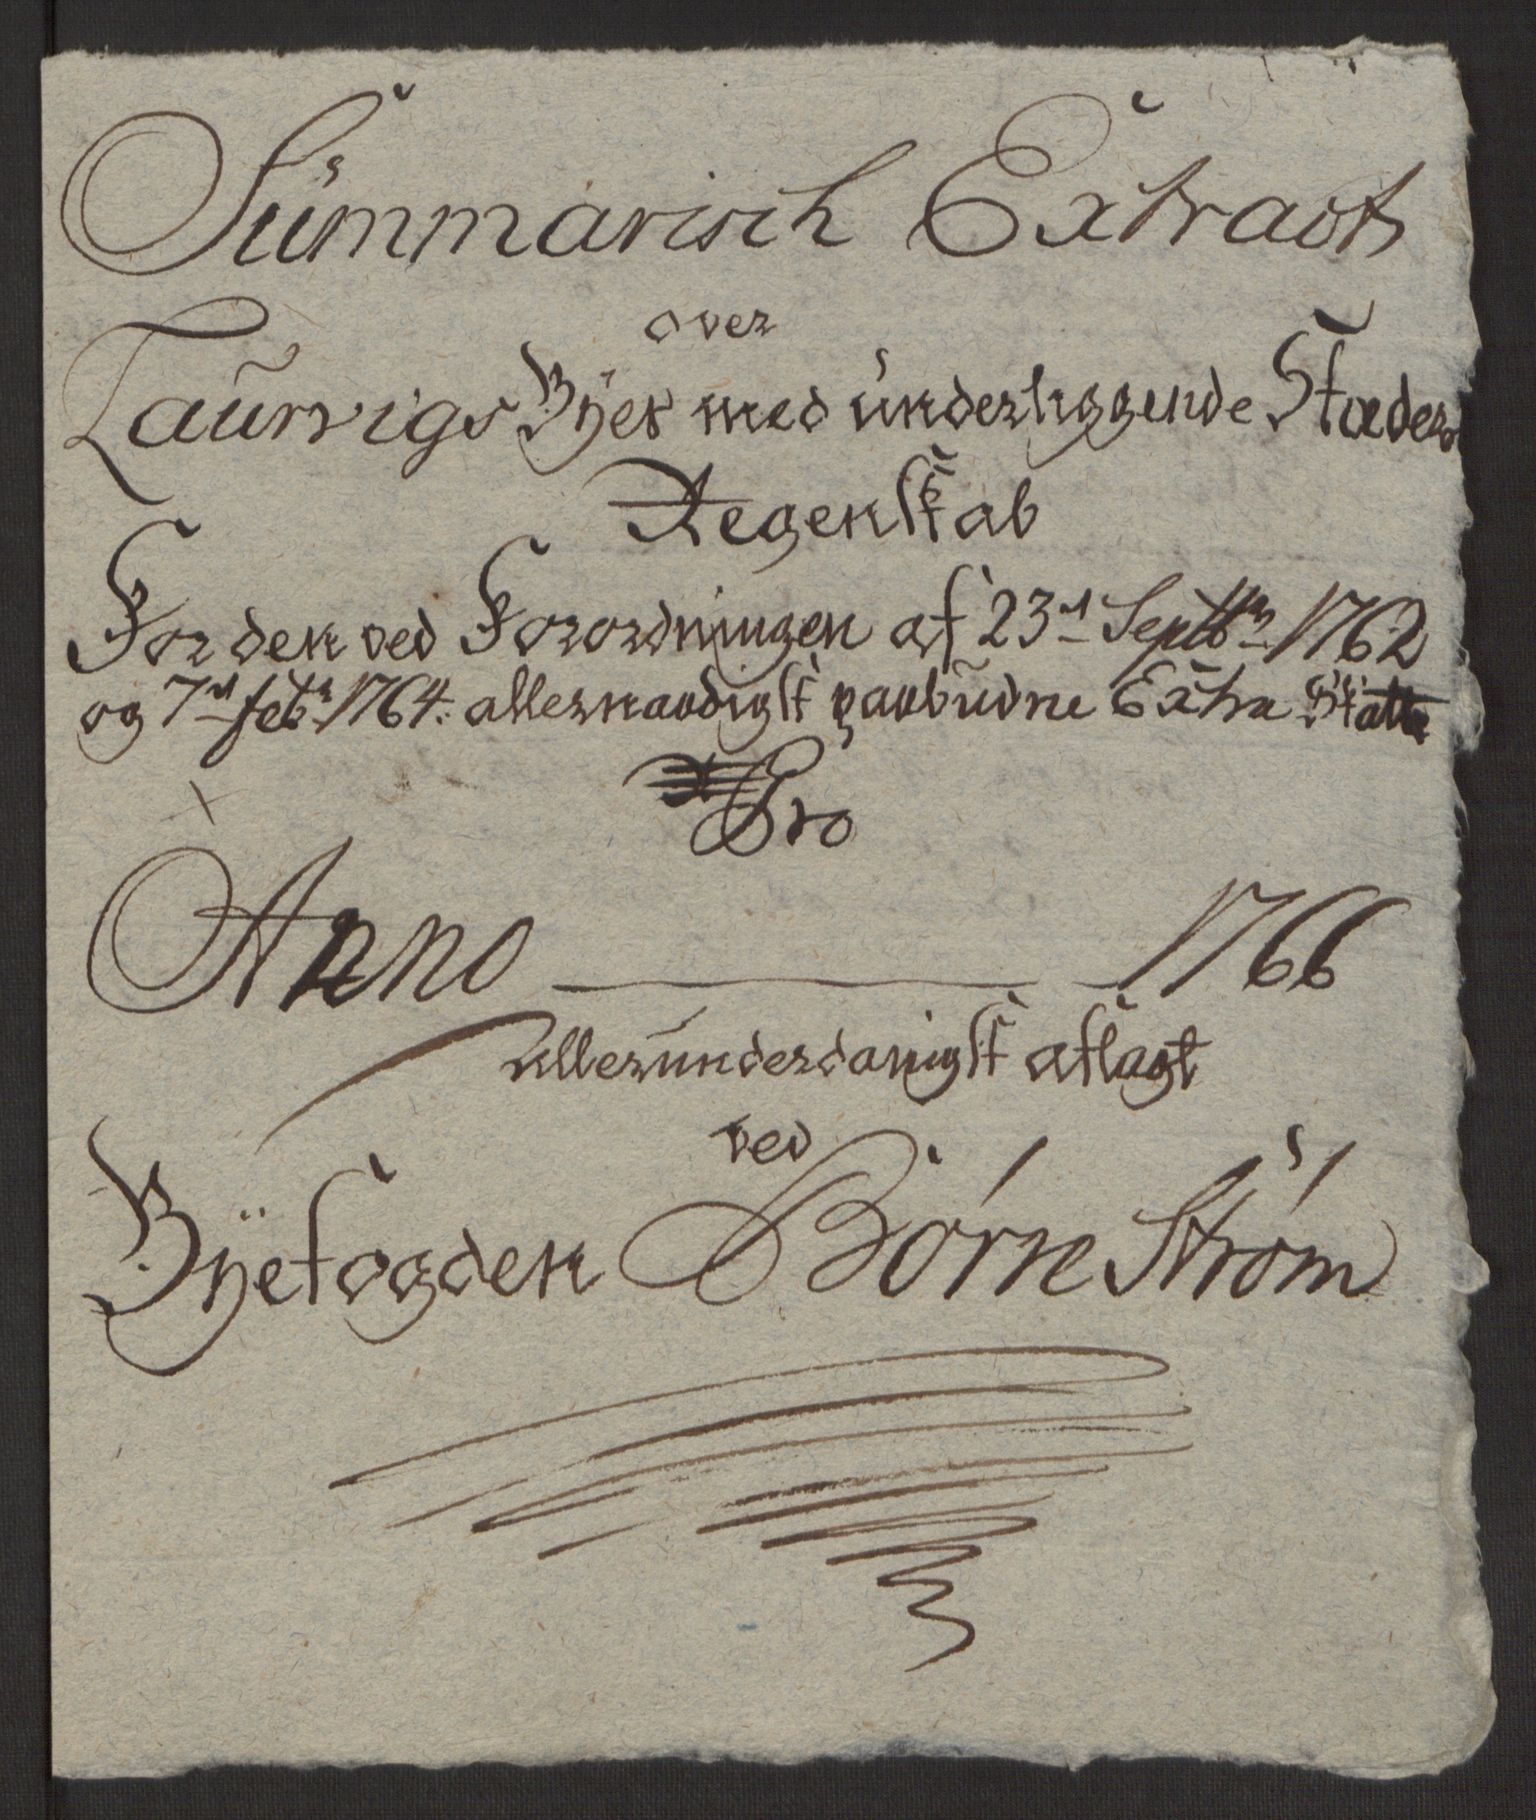 Summarisch Extract
over
Laurvigs Byes med underliggende Stæders
Regenskab
For den ved Forordningen af 23de Septbr 1762
og 7de febr 1764. allernaadigst paabudne Extra Skatte
Pro
Anno 1766
allerunderdanigst aflagt
ved
Byefogden Börre Ström